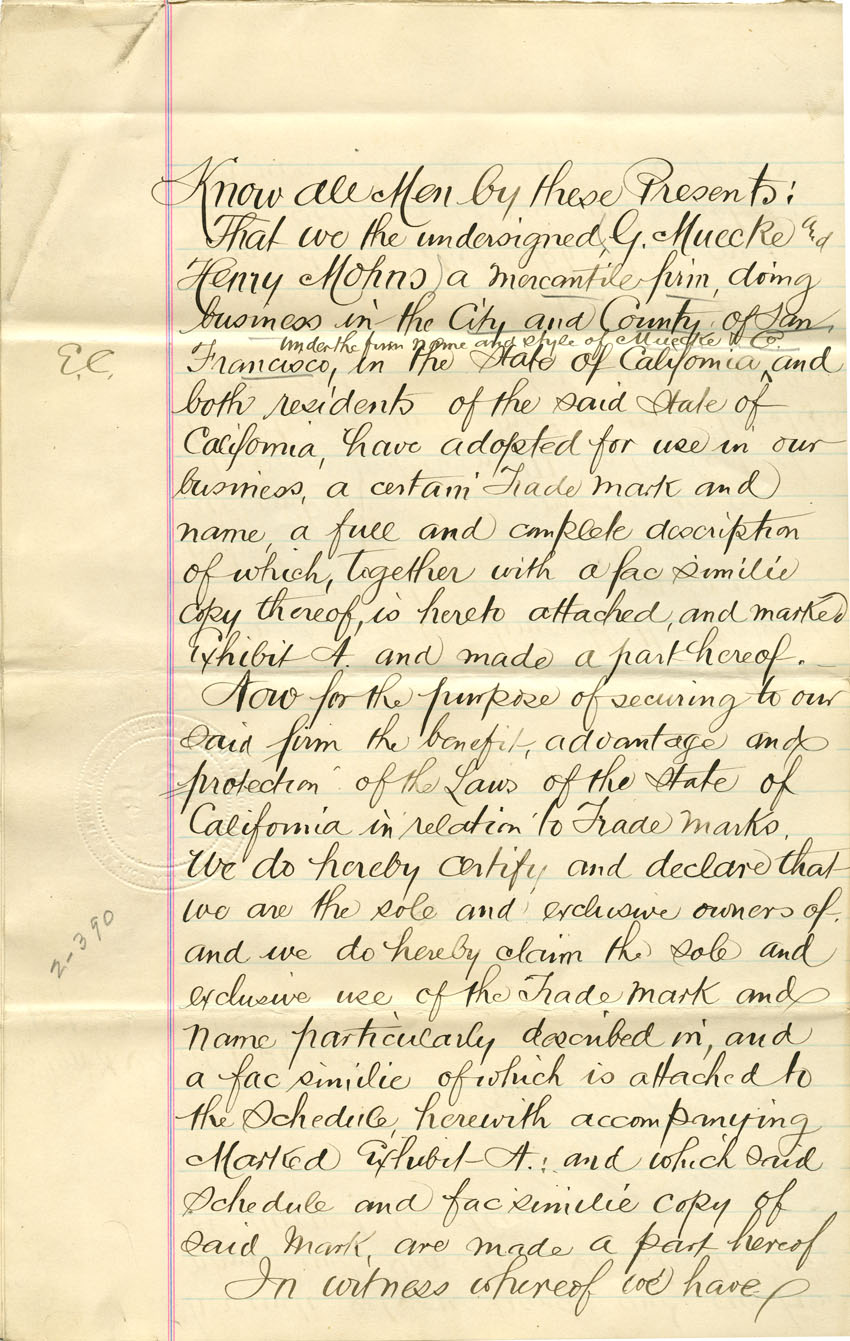 Know all Men by these Presents:
That we the undersigned, G. Muecke and
Henry Mohns) a mercantile firm, doing
business in the City and County of San
under the firm name and style of Muecke & Co.
E.C.
Francisco, in the State of California, and
both residents of the said State of
California, have adopted for use in our
business, a certain Trade mark and
name, a full and complete description
of which, together with a fac similie
copy thereof, is hereto attached, and marked
Exhibit A. and made a part hereof.
Now for the purpose of securing to our
said firm the benefit, advantage and
protection of the Laws of the State of
California in relation to Trade Marks.
We do hereby certify and declare that
we are the sole and exclusive owners of.
and we do hereby claim the sole and
2-390
exclusive use of the Trade Mark and
Name particularly described in, and
a fac similie of which is attached to
the Schedule, herewith accompanying
Marked Exhibit A.: and which said
Schedule and fac similie copy of
said Mark, are made a part hereof
In witness whereof we have